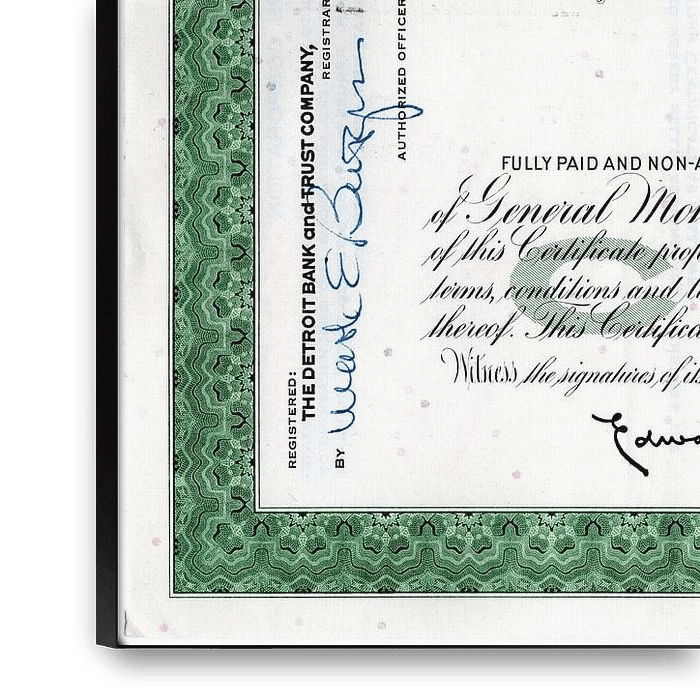 REGISTERED:
THE DETROIT BANK and TRUST COMPANY,
REGISTRAR
BY
AUTHORIZED OFFICER
FULLY PAID AND NON-A
of General Mo
of this Certificate prop
terms, conditions and
thereof. This Certifica
Witness the signatures of
Edwa